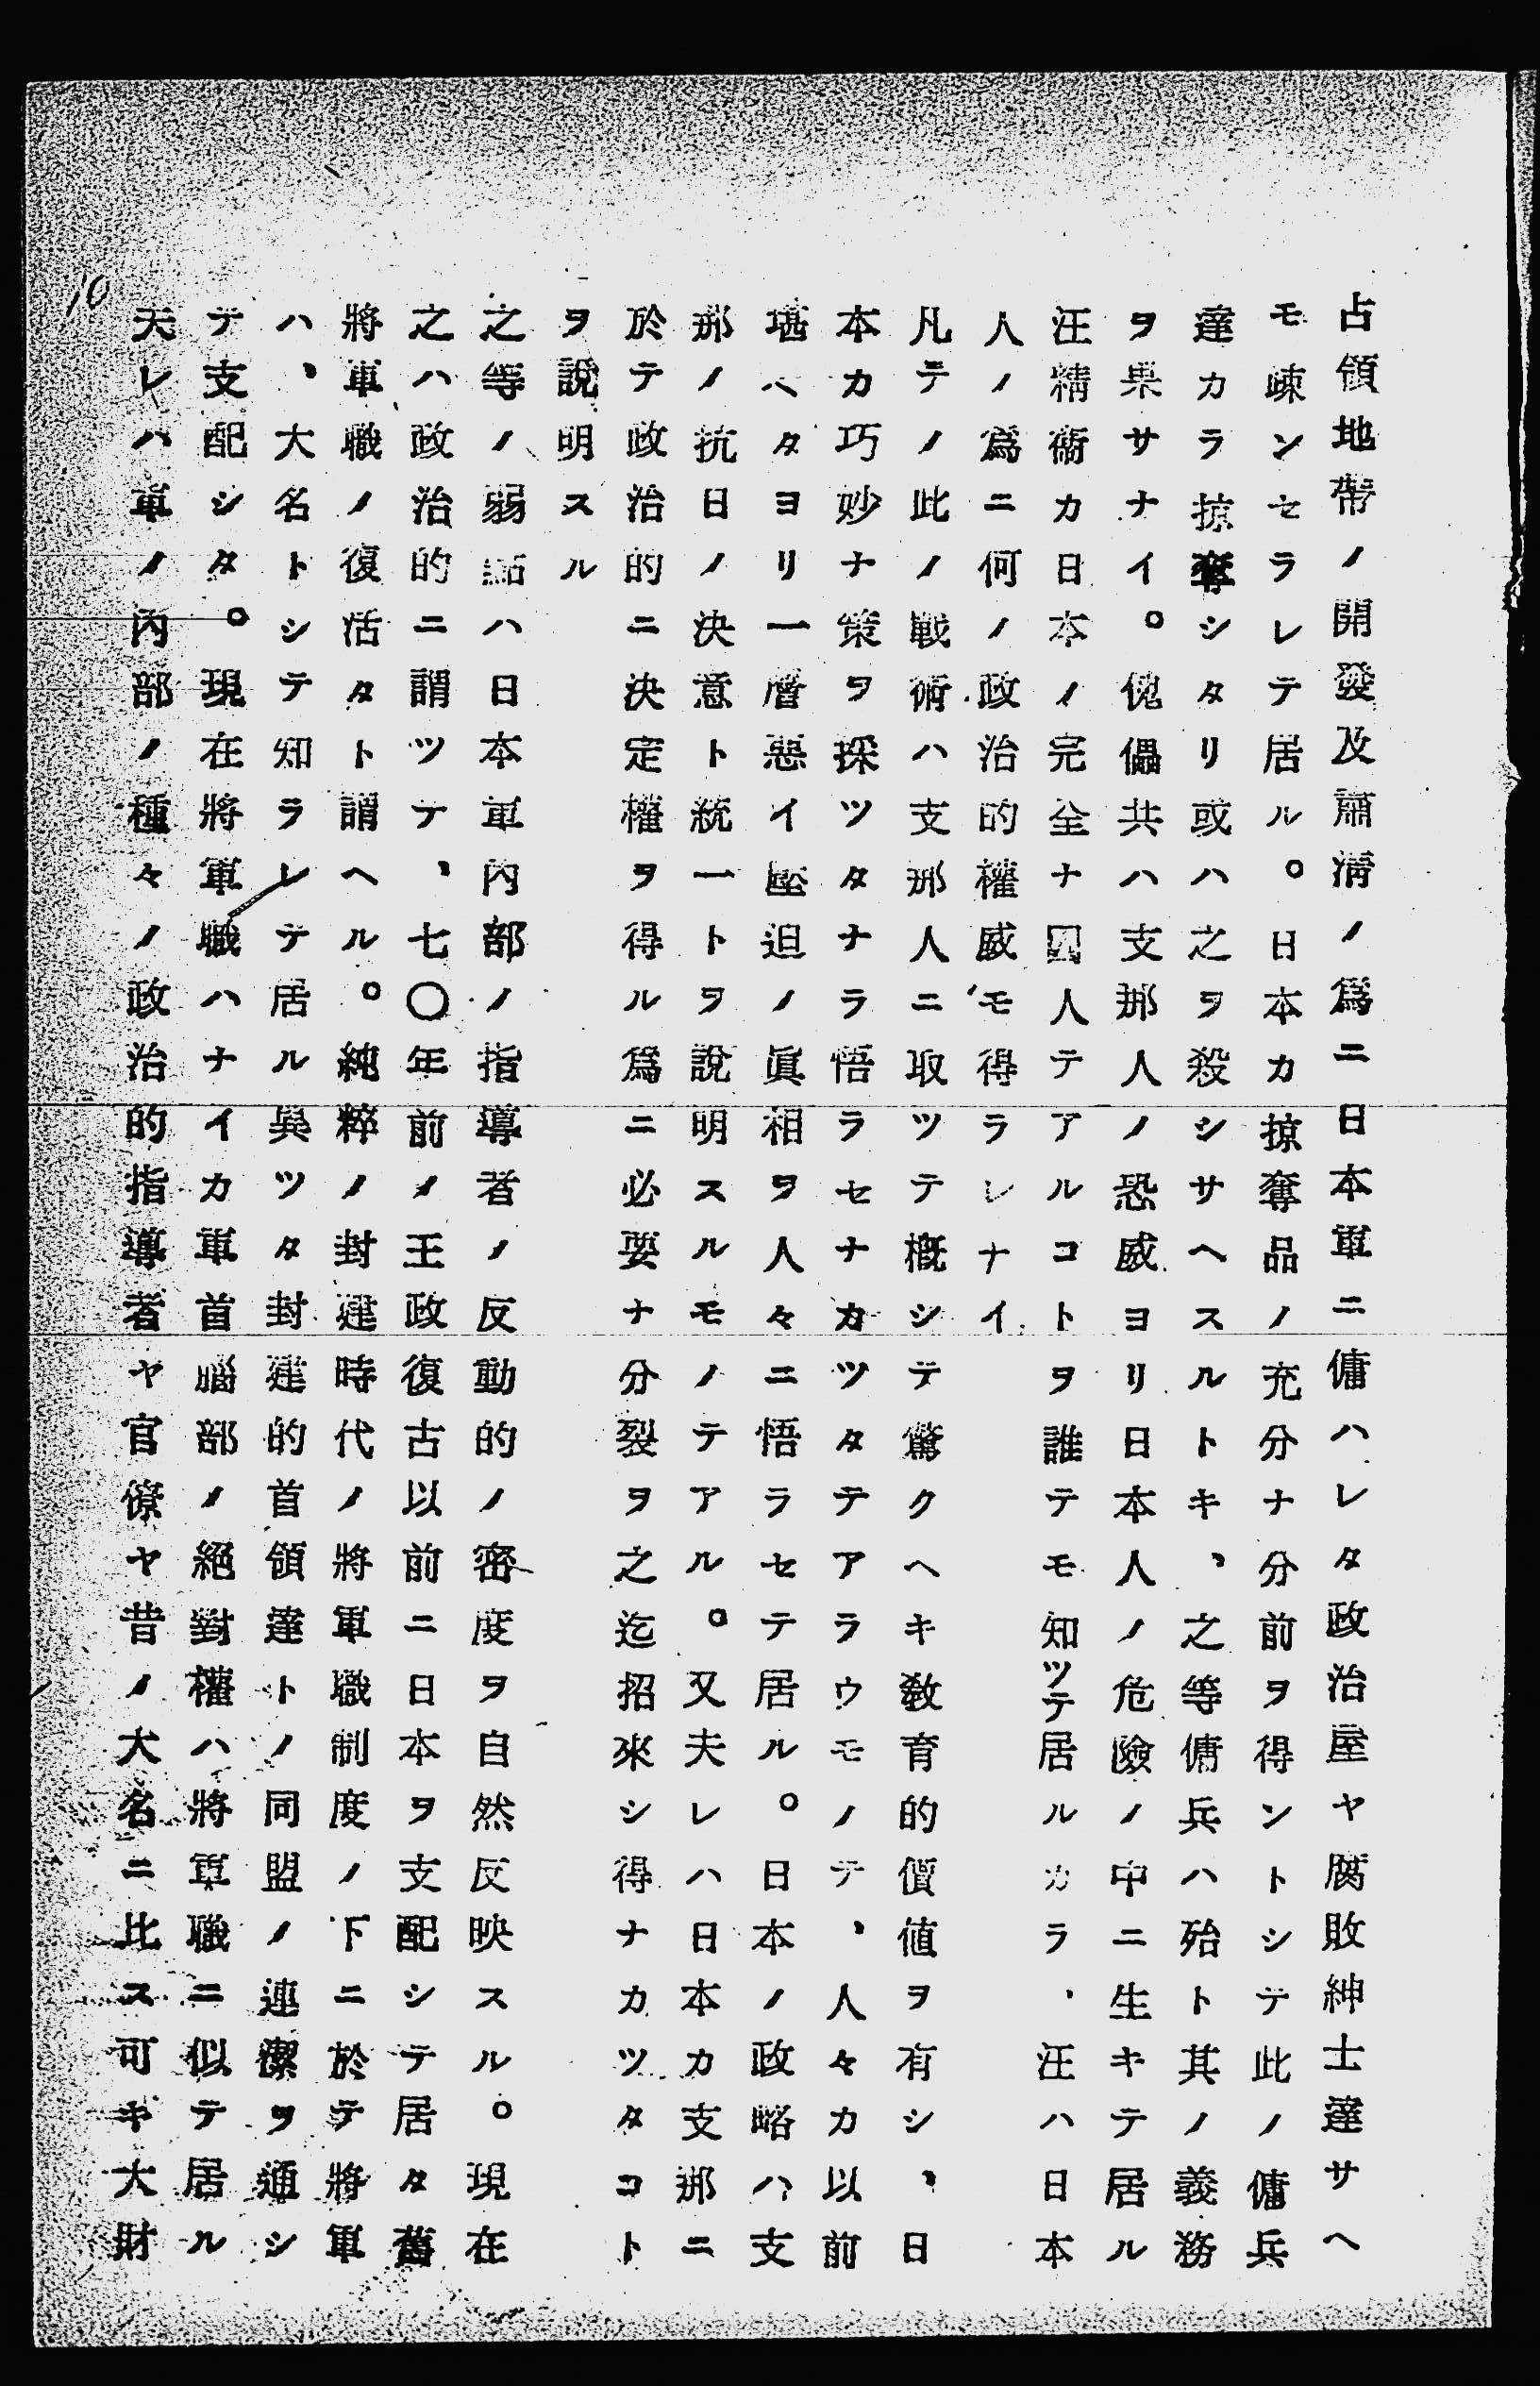 占領地帶ノ開發及肅淸ノ爲ニ日本軍ニ傭ハレタ政治屋ヤ腐敗紳士達サヘ
モ疎ンセラレテ居ル。日本カ掠奪品ノ充分ナ分前ヲ得ントシテ此ノ傭兵
達カラ掠奪シタリ或ハ之ヲ殺シサヘスルトキ、之等傭兵ハ殆ト其ノ義務
ヲ果サナイ。傀儡共ハ支那人ノ恐威ヨリ日本人ノ危險ノ中ニ生キテ居ル
汪精衞カ日本ノ完全ナ囚人テアルコトヲ誰テモ知ツテ居ルカラ、汪ハ日本
人ノ爲ニ何ノ政治的權威モ得ラレナイ
凡テノ此ノ戰術ハ支那人ニ取ツテ槪シテ驚クヘキ敎育的價値ヲ有シ、日
本カ巧妙ナ策ヲ採ツタナラ悟ラセナカツタテアラウモノテ、人々カ以前
堪ヘタヨリ一層惡イ壓迫ノ眞相ヲ人々ニ悟ラセテ居ル。日本ノ政略ハ支
那ノ抗日ノ決意ト統一トヲ說明スルモノテアル。又夫レハ日本カ支那ニ
於テ政治的ニ決定權ヲ得ル爲ニ必要ナ分裂ヲ之迄招來シ得ナカツタコト
ヲ說明スル
之等ノ弱點ハ日本軍內部ノ指導者ノ反動的ノ密度ヲ自然反映スル。現在
之ハ政治的ニ謂ツテ、七〇年前ノ王政復古以前ニ日本ヲ支配シテ居タ舊
將軍職ノ復活タト謂ヘル。純粹ノ封建時代ノ將軍職制度ノ下ニ於テ將軍
ハ、大名トシテ知ラレテ居ル異ツタ封建的首領達トノ同盟ノ連繫ヲ通シ
テ支配シタ。現在將軍職ハナイカ軍首腦部ノ絕對權ハ將軍職ニ似テ居ル
夫レハ軍ノ內部ノ種々ノ政治的指導者ヤ官僚ヤ昔ノ大名ニ比ス可キ大財
10